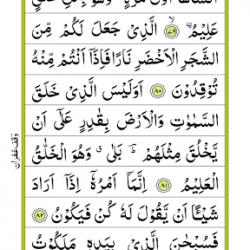 عَلِيْمٌ ۙ﴿۷۹﴾ الَّذِيْ جَعَلَ لَكُمْ مِّنَ
الشَّجَرِ الْاَخْضَرِ نَارًا فَاِذَاۤ اَنْتُمْ مِّنْهُ
تُوْقِدُوْنَ ﴿۸۰﴾ اَوَلَيْسَ الَّذِيْ خَلَقَ
السَّمٰوٰتِ وَالْاَرْضَ بِقٰدِرٍ عَلٰۤى اَنْ
يَّخْلُقَ مِثْلَهُمْ ؕ بَلٰى ۗ وَهُوَ الْخَلّٰقُ
الْعَلِيْمُ ﴿۸۱﴾ اِنَّمَاۤ اَمْرُهٗۤ اِذَاۤ اَرَادَ
شَيْـًٔا اَنْ يَّقُوْلَ لَهٗ كُنْ فَيَكُوْنُ ﴿۸۲﴾
فَسُبْحٰنَ الَّذِيْ بِيَدِهٖ مَلَكُوْتُ
وقف غفران